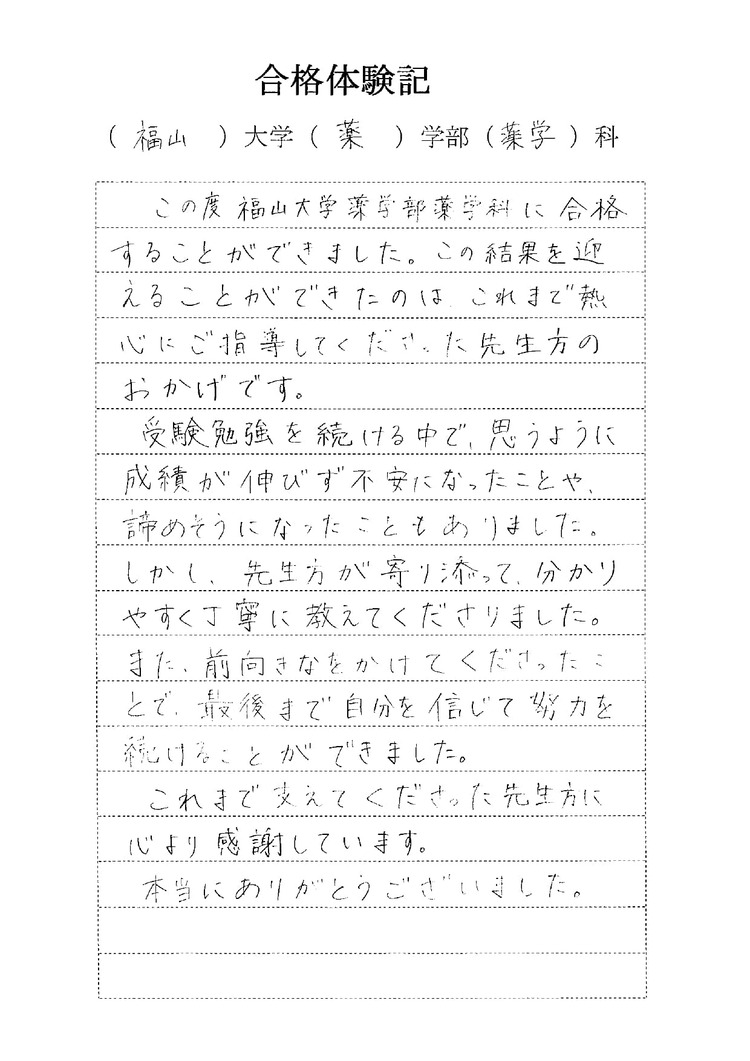 合格体験記
（ 福山 ）大学（ 薬 ）学部（ 薬学 ）科
この度福山大学薬学部薬学科に合格
することができました。この結果を迎
えることができたのは、これまで熱
心にご指導してくださった先生方の
おかげです。
受験勉強を続ける中で、思うように
成績が伸びず不安になったことや、
諦めそうになったこともありました。
しかし、先生方が寄り添って、分かり
やすく丁寧に教えてくださりました。
また、前向きなをかけてくださったこ
とで、最後まで自分を信じて努力を
続けることができました。
これまで支えてくださった先生方に
心より感謝しています。
本当にありがとうございました。